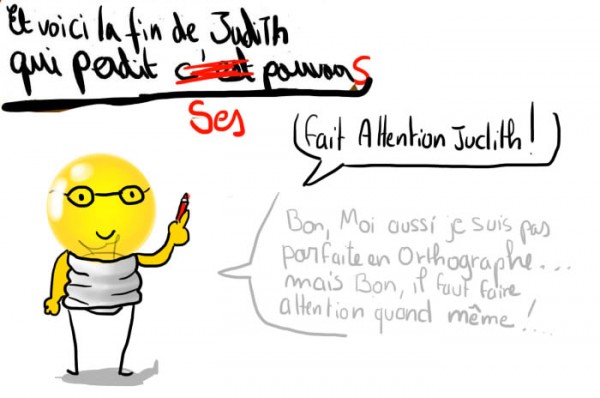 Et voici la fin de Judith
qui perdit c'est pouvoirs
Ses
(Fait Attention Judith !)
Bon, Moi aussi je suis pas
parfaite en Orthographe...
mais Bon, il faut faire
attention quand même !